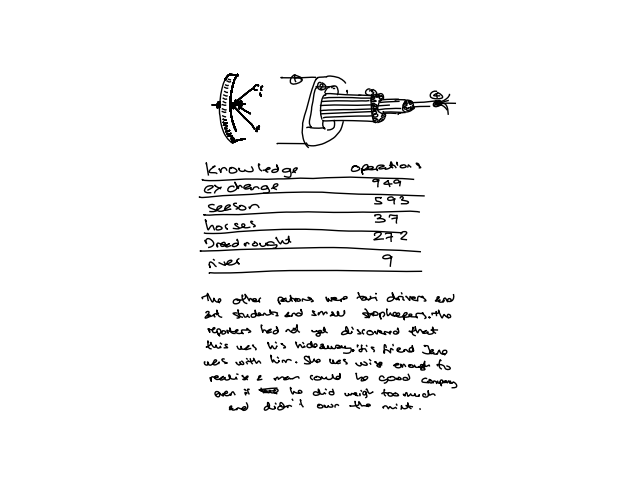 Knowledge operations
exchange 949
season 593
horses 37
Dreadnought 272
river 9
The other patrons were taxi drivers and
art students and small shopkeepers. The
reporters had not yet discovered that
this was his hideaway. His friend Jane
was with him. She was wise enough to
realize a man could be good company
even if he did weigh too much
and didn't own the mint.